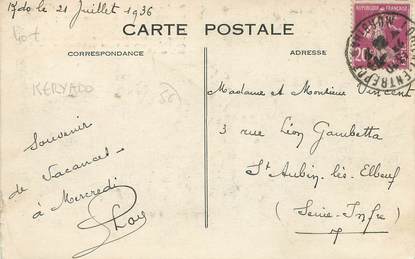 le 21 Juillet 1936
Lot
CARTE POSTALE
CORRESPONDANCE
ADRESSE
REPUBLIQUE FRANÇAISE
20
KERYADO
56
Madame et Monsieur Vincent
3 rue Léon Gambetta
St Aubin-lès-Elbeuf
(Seine-Infre)
Souvenir
de Vacances
à Mercredi